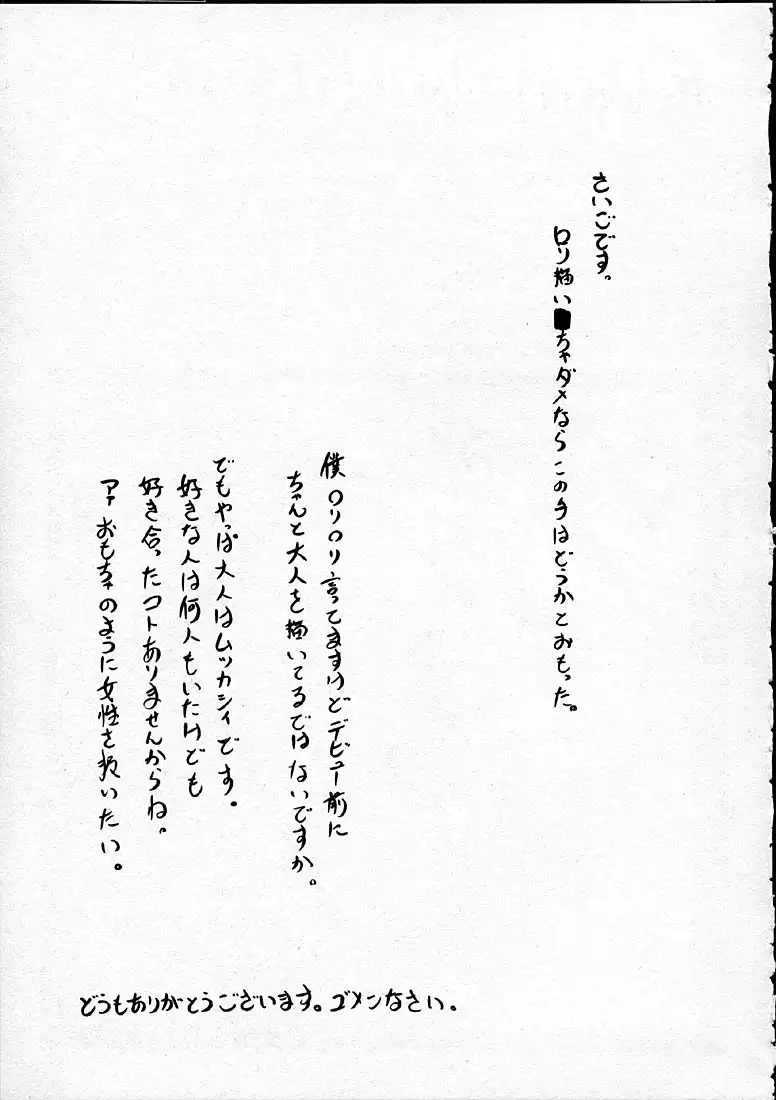 さいごです。
ロリ描いちゃダメならこの手はどうかとおもった。
僕ロリロリ言ってますけどデビュー前に
ちゃんと大人を描いてるではないですか。
でもやっぱ大人はムツカシイです。
好きな人は何人もいたけども
好き合ったコトありませんからね。
アァ おもちゃのように女性を扱いたい。
どうもありがとうございます。ゴメンなさい。